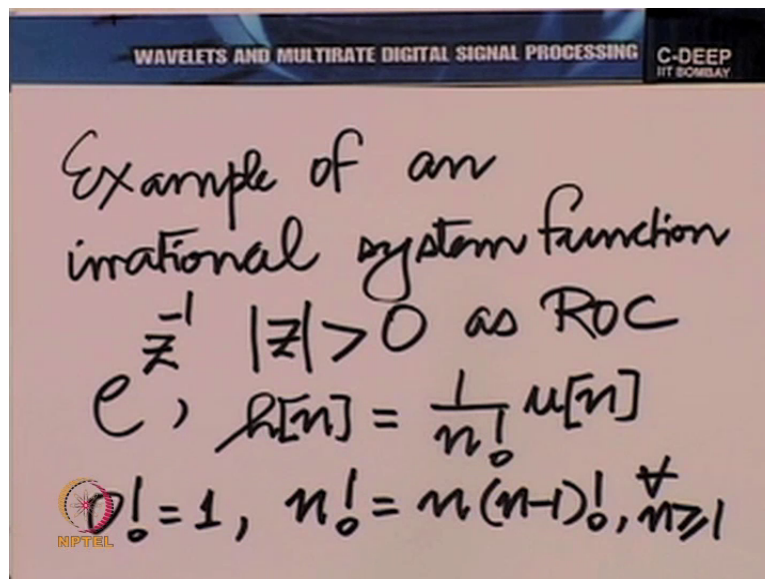 WAVELETS AND MULTIRATE DIGITAL SIGNAL PROCESSING
C-DEEP
IIT BOMBAY
Example of an
irrational system function
e^{z^{-1}}, |z|>0 as ROC
h[n] = \frac{1}{n!} u[n]
0! = 1, n! = n(n-1)!, ∀ n≥1
NPTEL